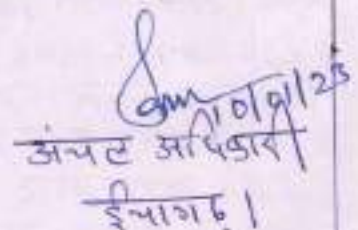 10/01/23
अंचल अधिकारी
ईचागढ़।